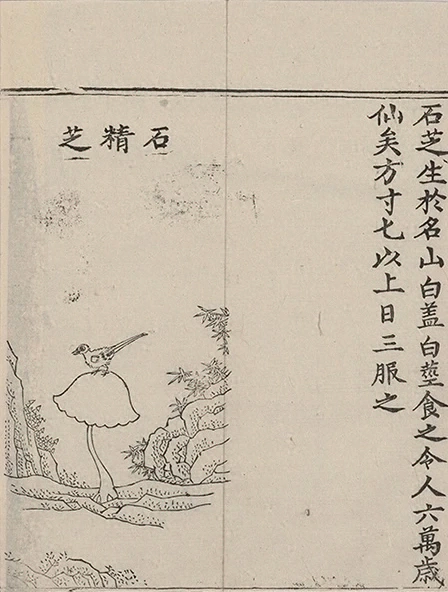 石芝生於名山白盖白莖食之令人六萬歳
仙矣方寸七以上日三服之
石精芝